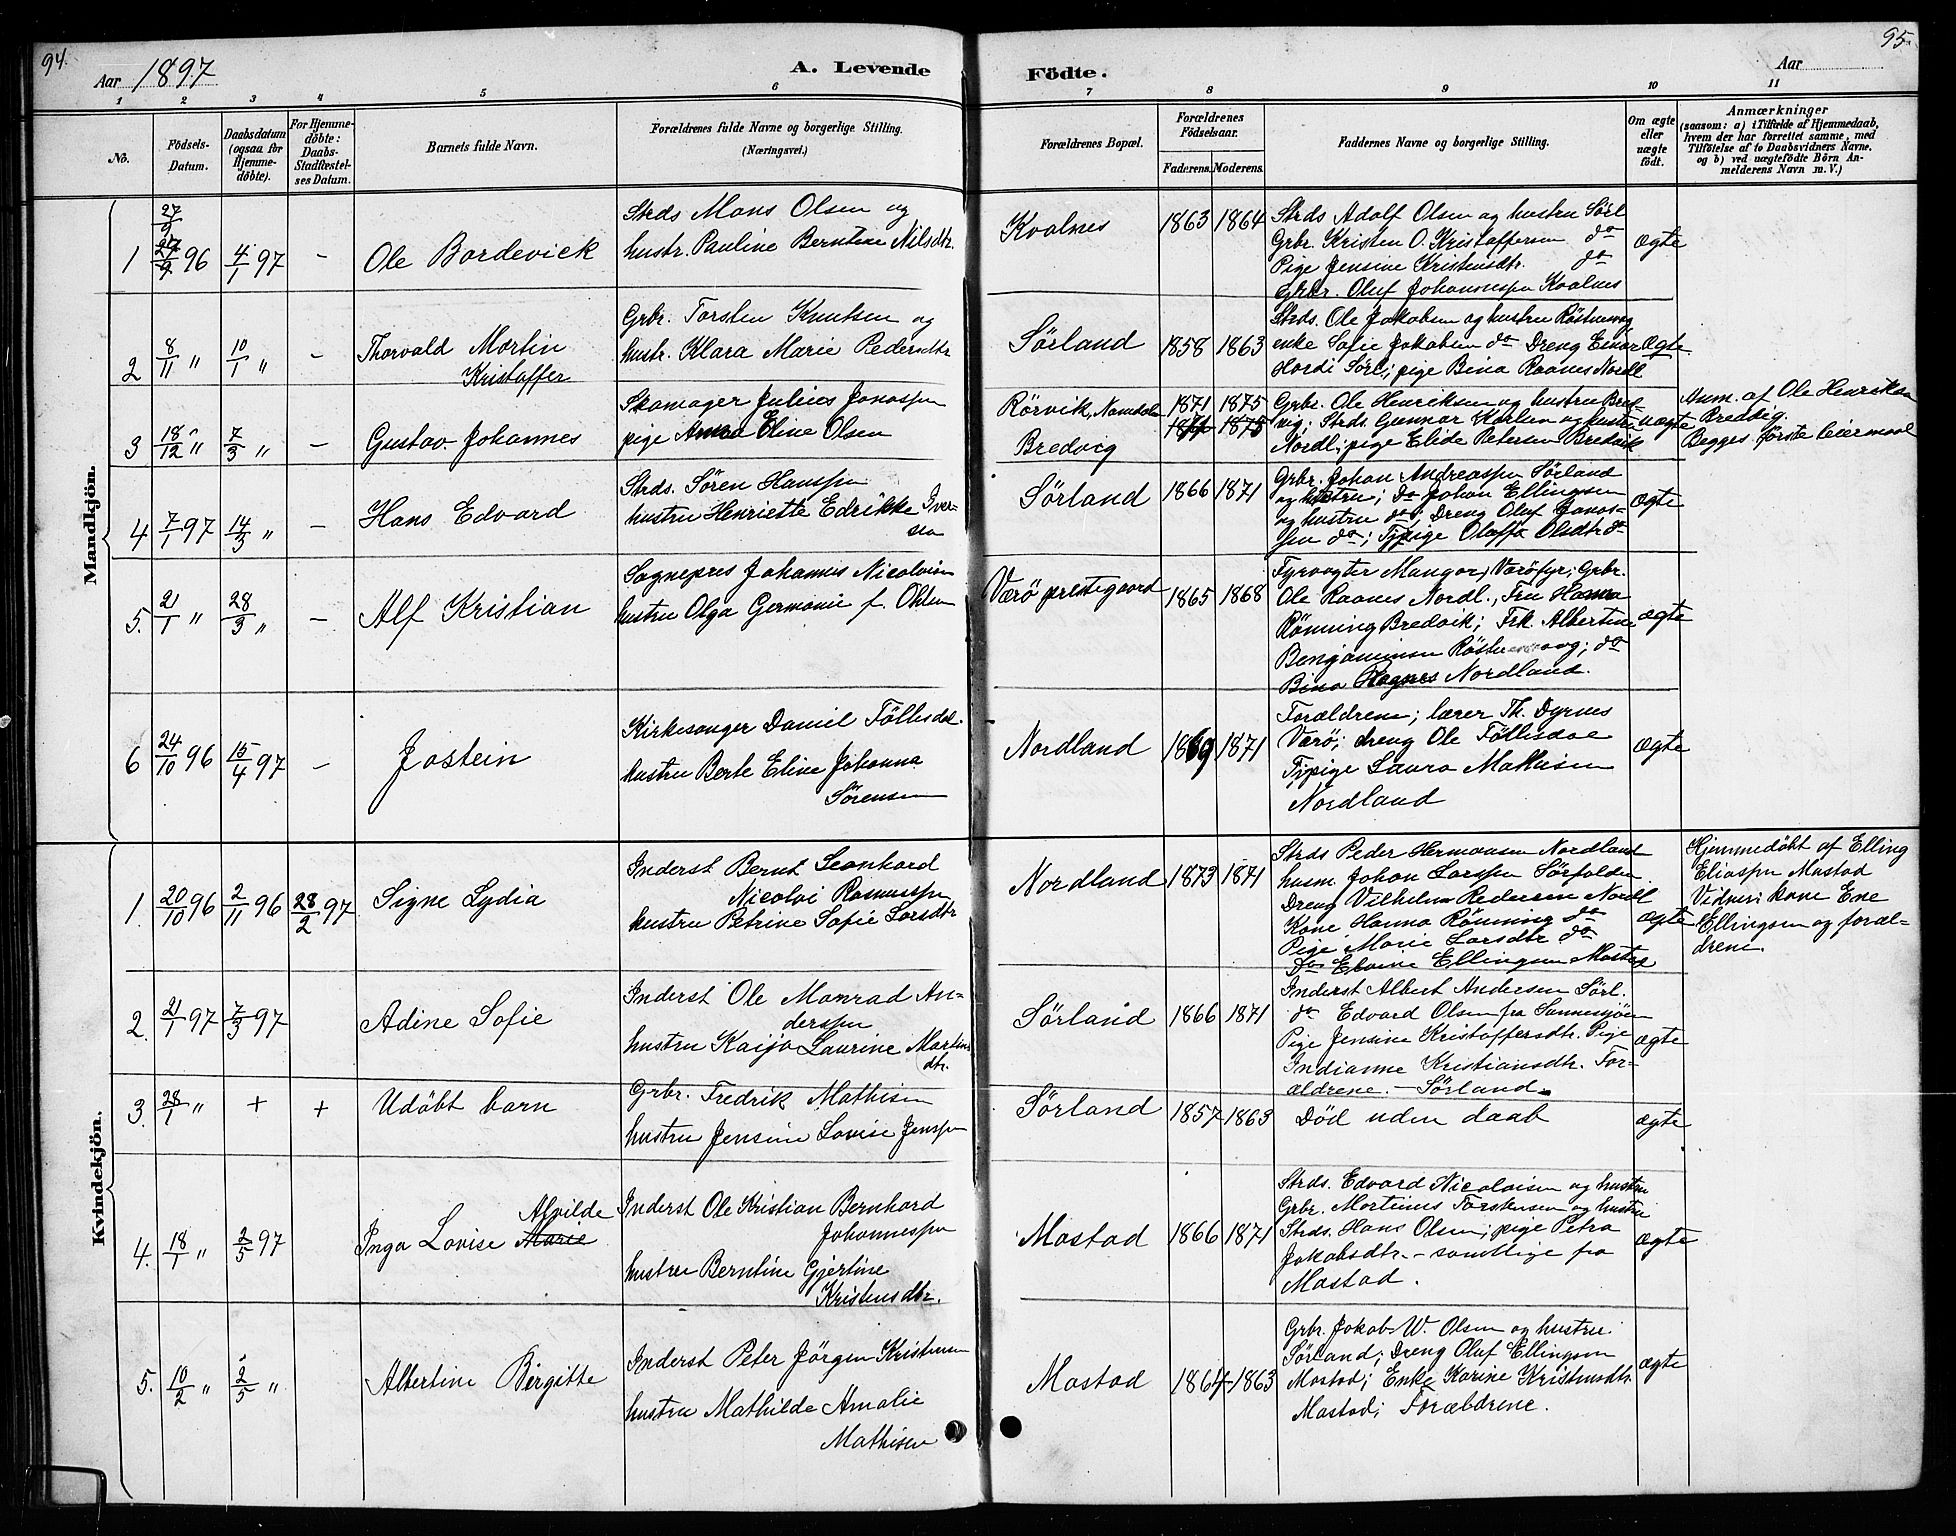 94.
95.
Aar 1897
A. Levende
Födte.
Aar
1 2 3 4 5 6 7 8 9 10 11
No.
Födsels-
Datum.
Daabsdatum
(ogsaa for
Hjemme-
döbte).
For Hjemme-
döbte:
Daabs-
Stadfæstel-
ses Datum.
Barnets fulde Navn.
Forældrenes fulde Navne og borgerlige Stilling.
(Næringsvei.)
Forældrenes Bopæl.
Forældrenes
Födselsaar.
Faderens. Moderens.
Faddernes Navne og borgerlige Stilling.
Om ægte
eller
uægte
födt.
Anmærkninger
(saasom: a) i Tilfælde af Hjemmedaab,
hvem der har forrettet samme, med
Tilföielse af to Daabsvidners Navne,
og b) ved uægtefödte Börn An-
melderens Navn m. V.)
Mandkjön.
27/9
1 27/9 96 4/1 97 - Ole Bordevick
Strds Mons Olsen og
hustr. Pauline Berntine Nilsdtr.
Kvalnes 1863 1864
Strds Adolf Olsen og hustru Sörl
Grbr. Kristen O. Kristoffersen do
Pige Jensine Kristensdtr. do
Grbr. Oluf Johannessen Kvalnes
ægte
2 8/11 " 10/1 " - Thorvald Martin
Kristoffer
Grbr. Torsten Knutsen og
hustr. Klara Marie Pedersdtr
Sørland 1858 1863
Strds. Ole Jakobsen og hustru Röstnesvag
enke Sofie Jakobsen do Dreng Einar
Hordi Sørl; pige Bina Raanes Nordl
Ægte
3 18/12 " 7/3 " - Gustav Johannes
Skomager Julius Jonassen
pige Anna Eline Olsen
Rörvik, Namdalen 1871 1875
Bredvig 1875
Grbr. Ole Henriksen og hustru Bred-
vig; Strds. Gunnar Karlsen og hustru
Nordl, pige Elide Petersen Bredvik
uægte
Anm. af Ole Henriksen
Bredvig.
Begges første leiermaal
4 7/1 97 14/3 " - Hans Edvard
Strds. Søren Hanssen
hustru Henriette Edrikke Iver-
sen
Sørland 1866 1871
Grbr. Johan Andreassen Sörland
og hustru; Do Johan Ellingsen
og hustru do; Dreng Oluf Jonas-
sen do; Tjpige Olaffa Olsdtr do
ægte
5. 21/1 " 28/3 " - Alf Kristian
Sognepres Johannes Nicolaisen
hustru Olga Germanie f. Ohlsen
Værö prestegaard 1865 1868
Fyrvogter Mangor, Værøfyr; Grbr.
Ole Raanes Nordl., Fru Hanna
Rönning Bredvik; Frk. Albertine
Benjaminsen Röstnesvag; do
Bina Nordland.
ægte
6 24/10 96 15/4 97 - Jostein
Kirkesanger Daniel Föllesdal
hustru Berte Eline Johanna
Sørensen
Nordland 1869 1871
Forældrene; lærer Th. Dyrnes
Værø; dreng Ole Föllesdal
Tjpige Laura Mathisen
Nordland
ægte
Kvindekjön.
1. 20/10 96 2/11 96 28/2 97 Signe Lydia
Inderst Bernt Leonhard
Nicolai Rasmussen
hustru Petrine Sofie Larsdtr
Nordland 1873 1871
Strds Peder Hermansen Nordland
husm. Johan Larssen Sörfolden
Dreng Vilhelm Pedersen Nordl
Kone Hanna Rönning do
Pige Marie Larsdtr do
Do Elvine Ellingsen Mostad
ægte
Hjemmedöbt af Elling
Eliassen Mostad
Vidner: kone Ene
Ellingsen og foræl-
drene.
2. 21/1 97 7/3 97 Adine Sofie
Inderst Ole Monrad An-
derssen
hustru Kaija Laurine Martins
dtr.
Sørland 1866 1871
Inderst Albert Andersen Sörl.
do Edvard Olsen fra Sannesjöen
Pige Jensine Kristoffersdtr. Pige
Indianne Kristiansdtr. For-
ældrene. - Sörland.
ægte
3. 28/1 " + + Udöbt barn
Grbr. Fredrik Mathisen
hustru Jensine Lovise Jenssen
Sørland 1857 1863 Död uden daab ægte
4. 18/1 " 2/5 97 Inga Lovise Marie Alvilde
Inderst Ole Kristian Bernhard
Johannessen
hustru Berntine Gjertine
Kristensdtr.
Mostad 1866 1871
Strds. Edvard Nicolaisen og hustru
Grbr. Martinus Torstensen og hustru
Strds. Hans Olsen; pige Petra
Jakobsdtr. - samtlige fra
Mostad.
ægte
5. 10/2 " 2/5 " Albertine Birgitte
Inderst Peter Jörgen Kristensen
hustru Mathilde Amalie
Mathisen
Mostad 1864 1863
Grbr. Jakob W. Olsen og hustru
Sørland; Dreng Oluf Ellingsen
Mostad; Enke Karine Kristensdtr.
Mostad; Forældrene.
ægte